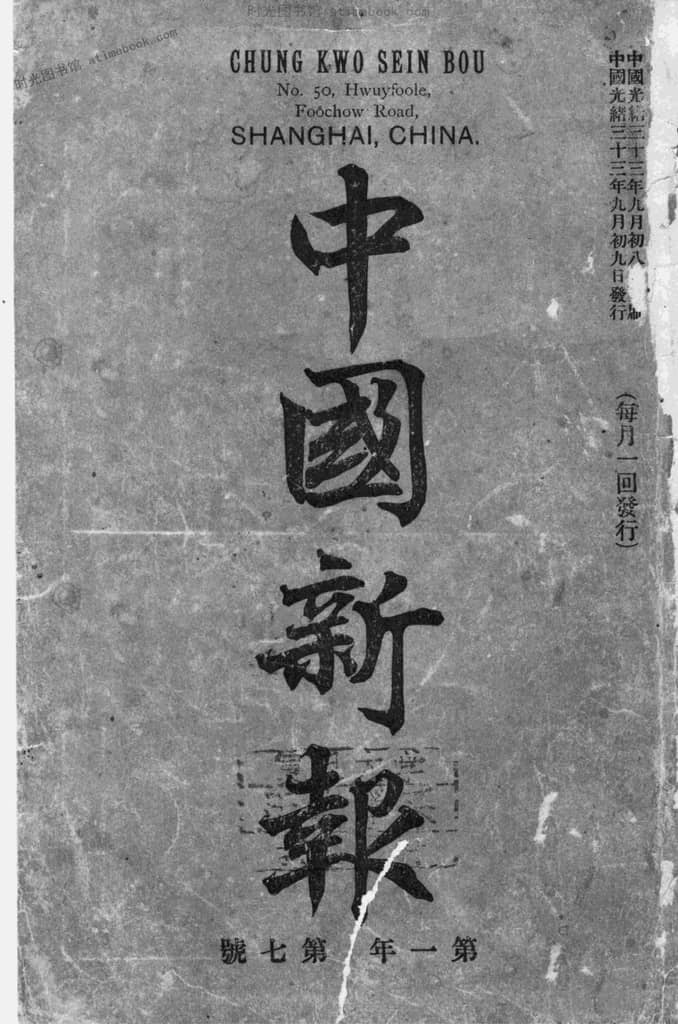 时光图书馆 atimebook.com
时光图书馆 atimebook.com
CHUNG KWO SEIN BOU
No. 50, Hwuyfoole,
Foochow Road,
SHANGHAI, CHINA.
中國光緒三十三年九月初八
中國光緒三十三年九月初九日發行
(每月一回發行)
中國新報
第一年第七號